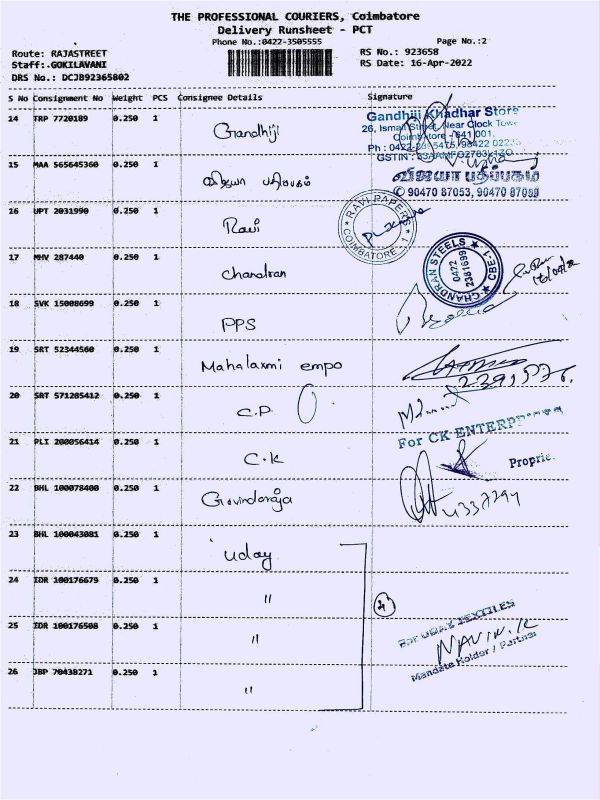 THE PROFESSIONAL COURIERS, Coimbatore
Delivery Runsheet - PCT
Phone No.:0422-3505555
Page No.:2
Route: RAJASTREET
RS No.: 923658
Staff:.GOKILAVANI
RS Date: 16-Apr-2022
DRS No.: DCJB92365802
S No Consignment No Weight PCS Consignee Details Signature
14 TRP 7720189 0.250 1 Gandhiji
Gandhiji Khadhar Store
26, Ismail Street, Near Clock Tower
Coimbatore - 641 001.
15 MAA 565645360 0.250 1 விஜயா பதிப்பகம்
விஜயா பதிப்பகம்
✆ 90470 87053, 90470 87058
16 UPT 2031990 0.250 1 Ravi
RAVI PAPERS
COIMBATORE - 1
17 MHV 287440 0.250 1 Chandran
CHANDRAN STEELS CBE-1
0422
2381699
18 SVK 15008699 0.250 1 PPS
19 SRT 52344560 0.250 1 Mahalaxmi empo
20 SRT 571285412 0.250 1 C.P
21 PLI 200056414 0.250 1 C.K
For CK ENTERPRISES
Proprie
22 BHL 100078400 0.250 1 Govindaraja
23 BHL 100043081 0.250 1 Uday
24 IDR 100176679 0.250 1 "
4
25 IDR 100176508 0.250 1 "
For UDAY TEXTILES
NAVIN.K
Mandate Holder / Partner
26 JBP 70438271 0.250 1 "